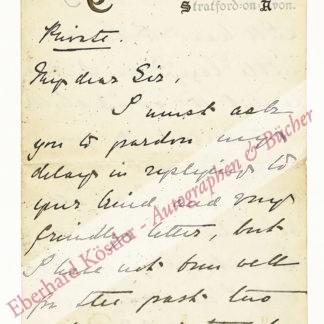 Stratford-on-Avon.
Private.
My dear Sir,
I must ask
you to pardon my
delay in replying to
your kind and very
friendly letter, but
I have not been well
for the past two
Eberhard Köstler - Autographen & Bücher